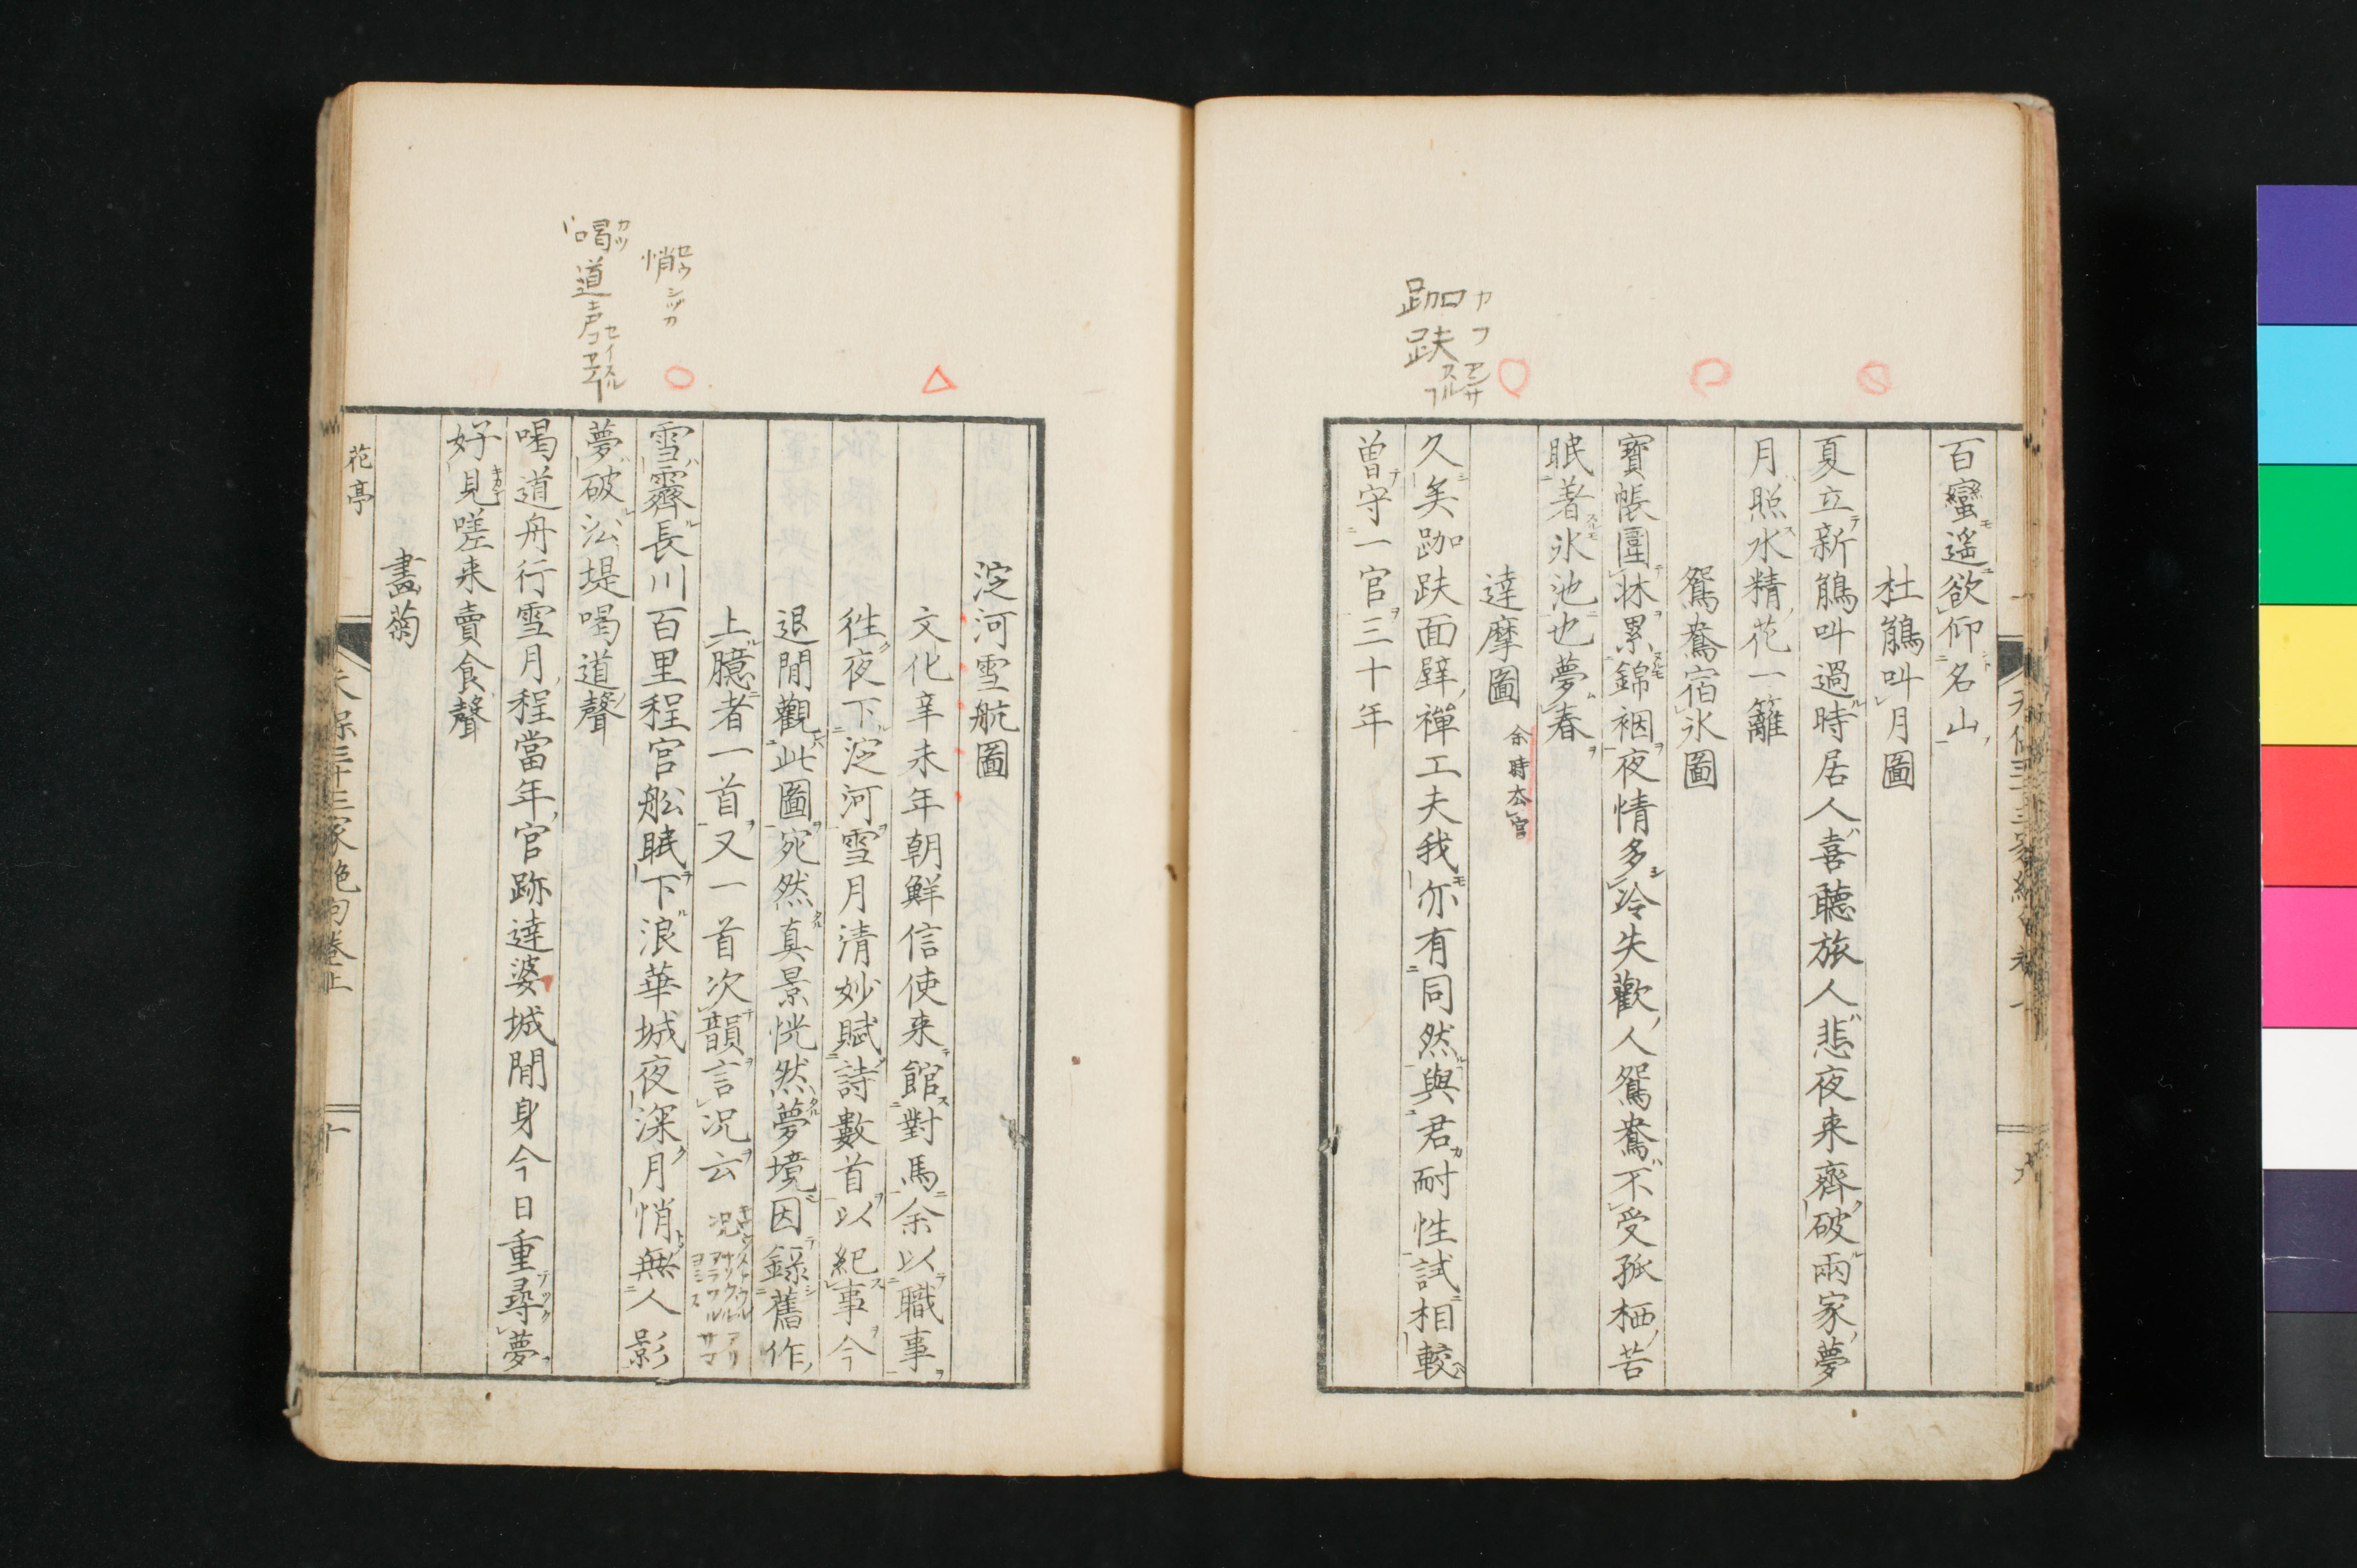 百蠻遥欲仰名山
杜鵑叫月圖
夏立新鵑叫過時居人喜聽旅人悲夜来齊破兩家夢
月照水精花一籬
鴛鴦宿氷圖
寳帳圍牀累錦裀夜情多冷失歡人鴛鴦不受孤栖苦
眠著氷池也夢春
達摩圖 余時夲官
久矣跏趺面壁禪工夫我亦有同然與君耐性試相較
曽守一官三十年
跏趺
淀河雪航圖
文化辛未年朝鮮信使来館對馬余以職事
徃夜下淀河雪月清妙賦詩數首以紀事今
退閒觀此圖宛然真景恍然夢境因録舊作
上臆者一首又一首次韻言况云
雪霽長川百里程官舩眠下浪華城夜深月悄無人影
夢破㳂堤喝道聲
喝道舟行雪月程當年官跡達婆城閒身今日重尋夢
好見嗟来賣食聲
畫菊
悄 セウ シヅカ
喝道 カツ
花亭
天保三十三家絶句巻上
十